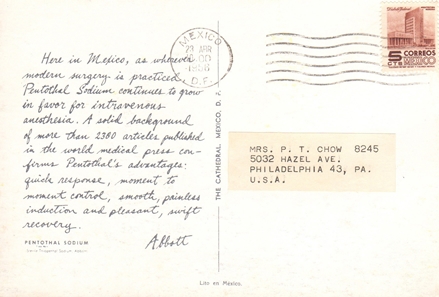 Here in Mexico, as wherever
modern surgery is practiced,
Pentothal Sodium continues to grow
in favor for intravenous
anesthesia. A solid background
of more than 2380 articles published
in the world medical press con-
firms Pentothal's advantages:
quick response, moment to
moment control, smooth, painless
induction and pleasant, swift
recovery.
Abbott
PENTOTHAL SODIUM
THE CATHEDRAL, MEXICO, D. F.
MEXICO
23 ABR
D. F.
5
CTS
CORREOS
MEXICO
MRS. P. T. CHOW 8245
5032 HAZEL AVE.
PHILADELPHIA 43, PA.
U.S.A.
Lito en Mexico.